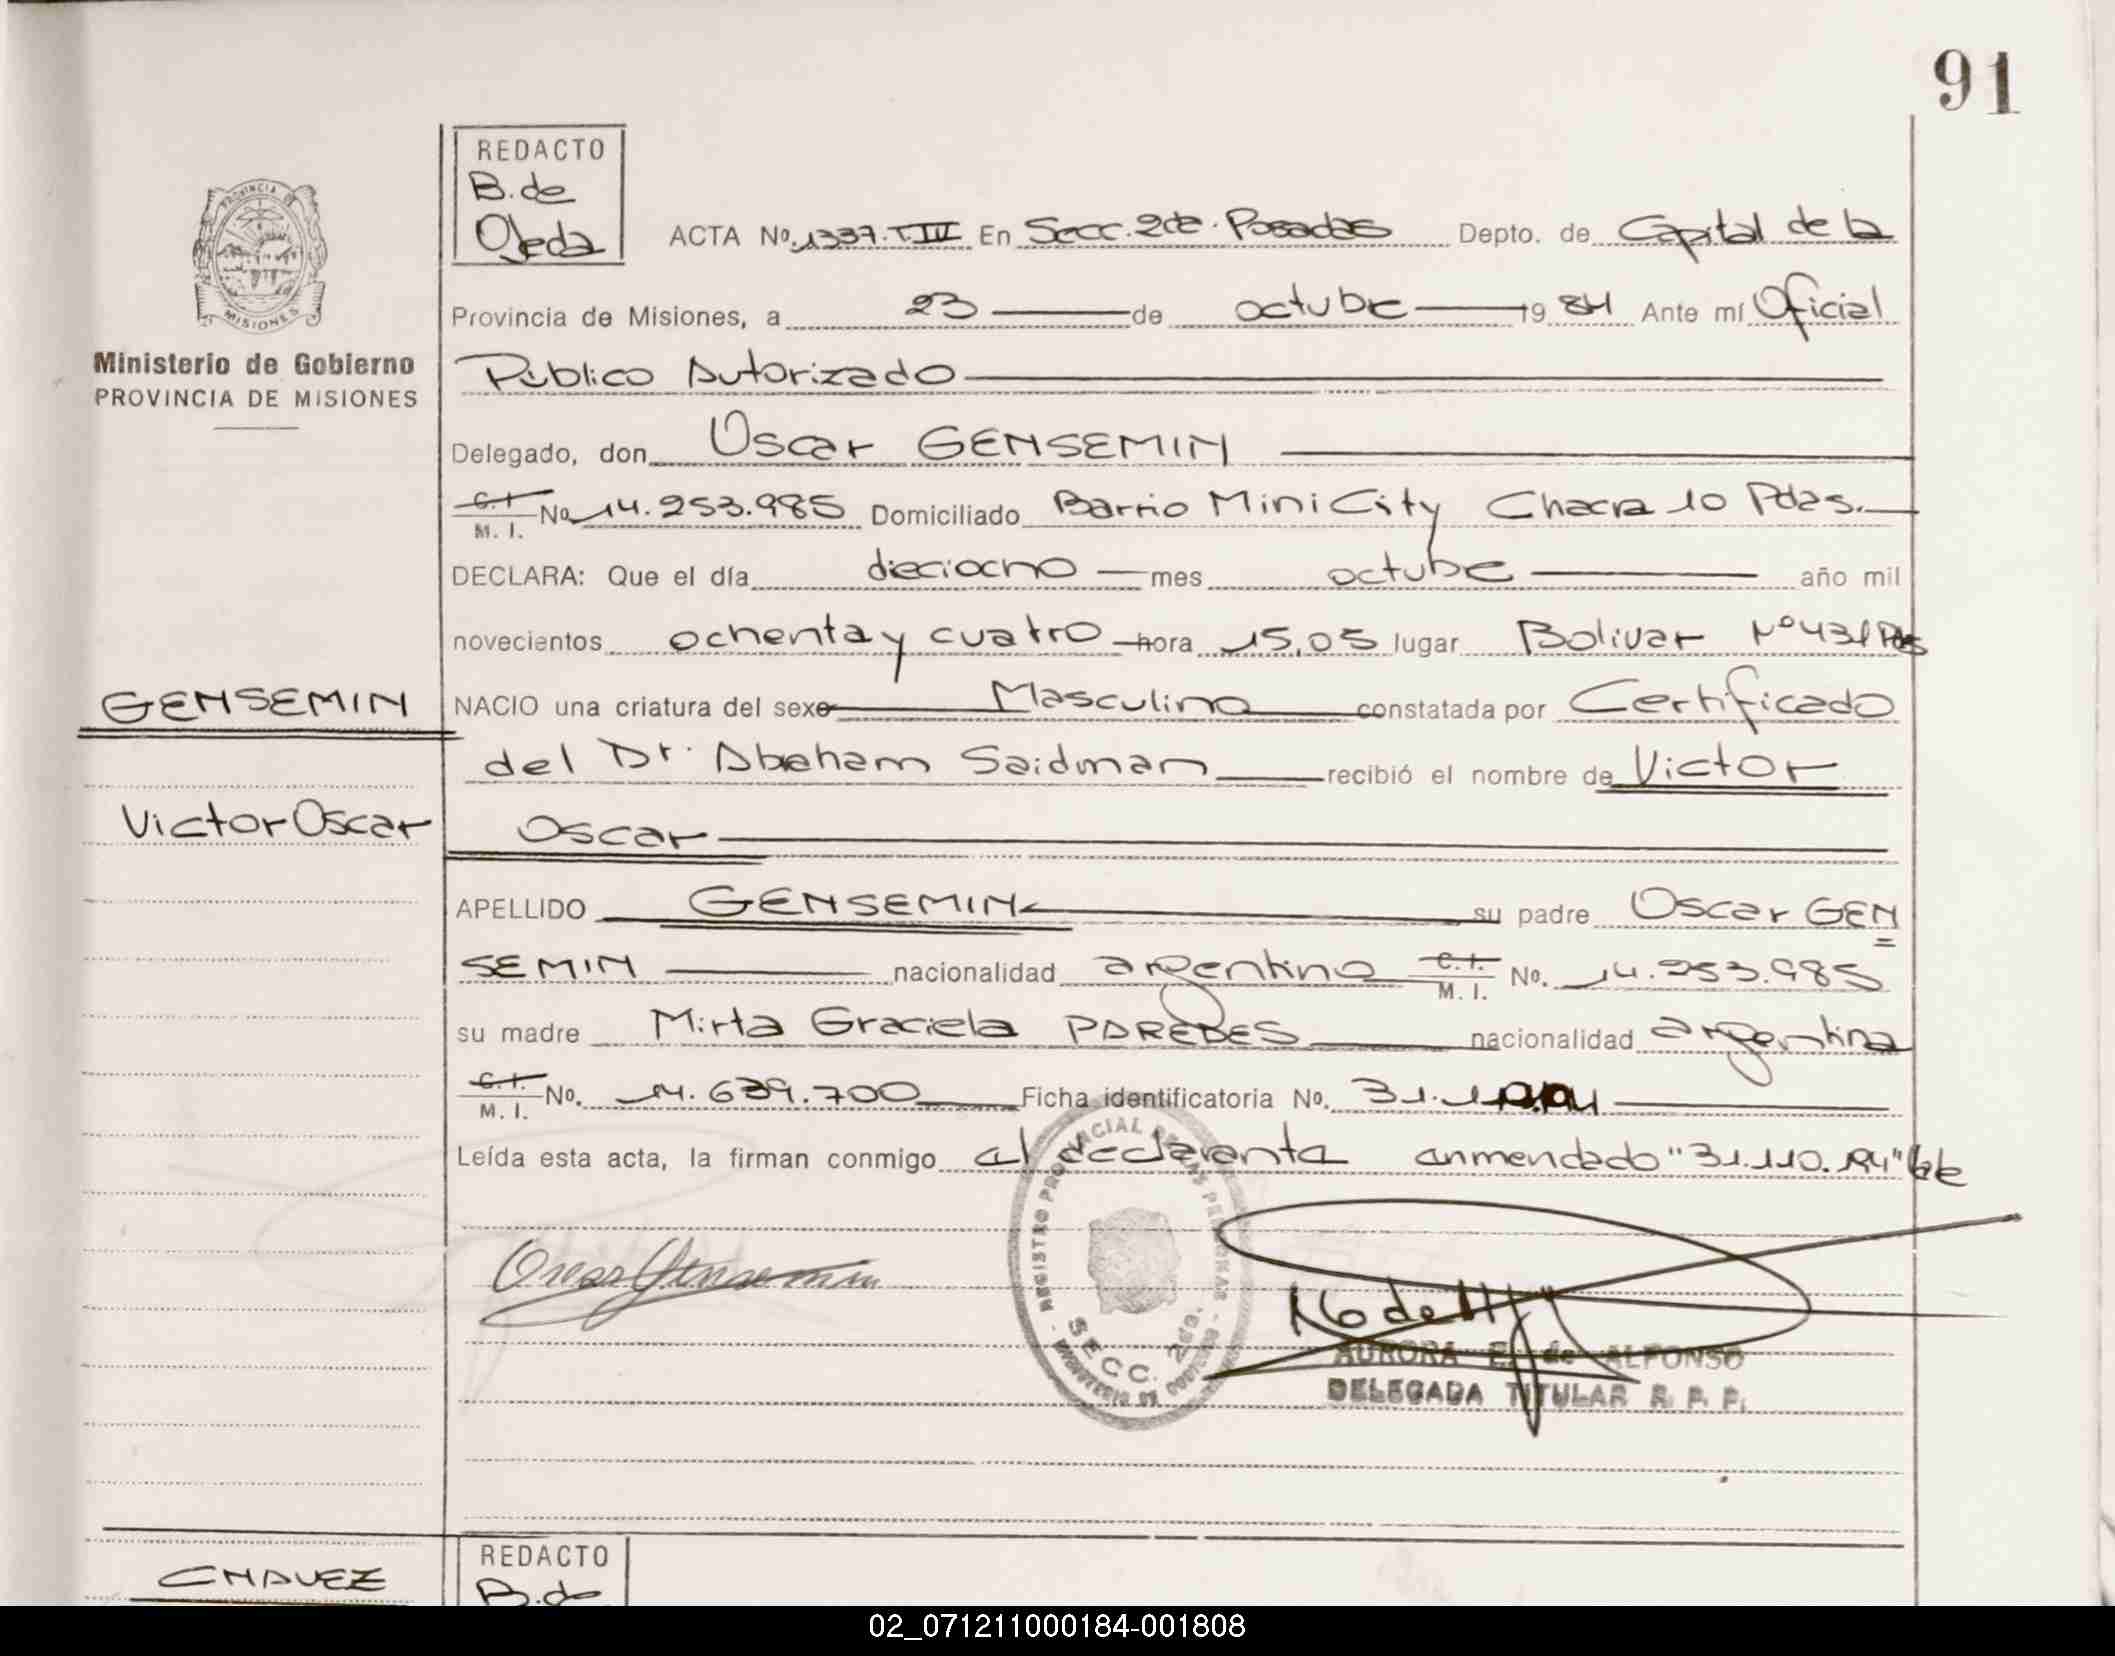 91
REDACTO
B. de
Ojeda
ACTA No. 1337. T. III En Secc. 2da. Posadas Depto. de Capital de la
PROVINCIA
MISIONES
Ministerio de Gobierno
PROVINCIA DE MISIONES
Provincia de Misiones, a 23 de octubre 1984 Ante mí Oficial
Público Autorizado
Delegado, don Oscar GENSEMIN
C.I. M.I. No. 14.253.985 Domiciliado Barrio Mini City Chacra 10 Pdas.
DECLARA: Que el día dieciocho mes octubre año mil
novecientos ochenta y cuatro hora 15,05 lugar Bolivar Nº 431 Pdas
GENSEMIN
NACIO una criatura del sexo Masculino constatada por Certificado
del Dr. Abraham Saidman recibió el nombre de Victor
Victor Oscar
Oscar
APELLIDO GENSEMIN su padre Oscar GEN
SEMIN nacionalidad argentino C.I. M.I. No. 14.253.985
su madre Mirta Graciela PAREDES nacionalidad argentina
C.I. M.I. No. 14.639.700 Ficha identificatoria No. 31.110.
Leída esta acta, la firman conmigo el declarante enmendado "31.110. "
REGISTRO PROVINCIAL DE LAS PERSONAS
SECC. 2da.
Oscar Gensemin
AURORA E. de ALFONSO
DELEGADA TITULAR R. P. P.
REDACTO
CHAVEZ
B. de
02_071211000184-001808